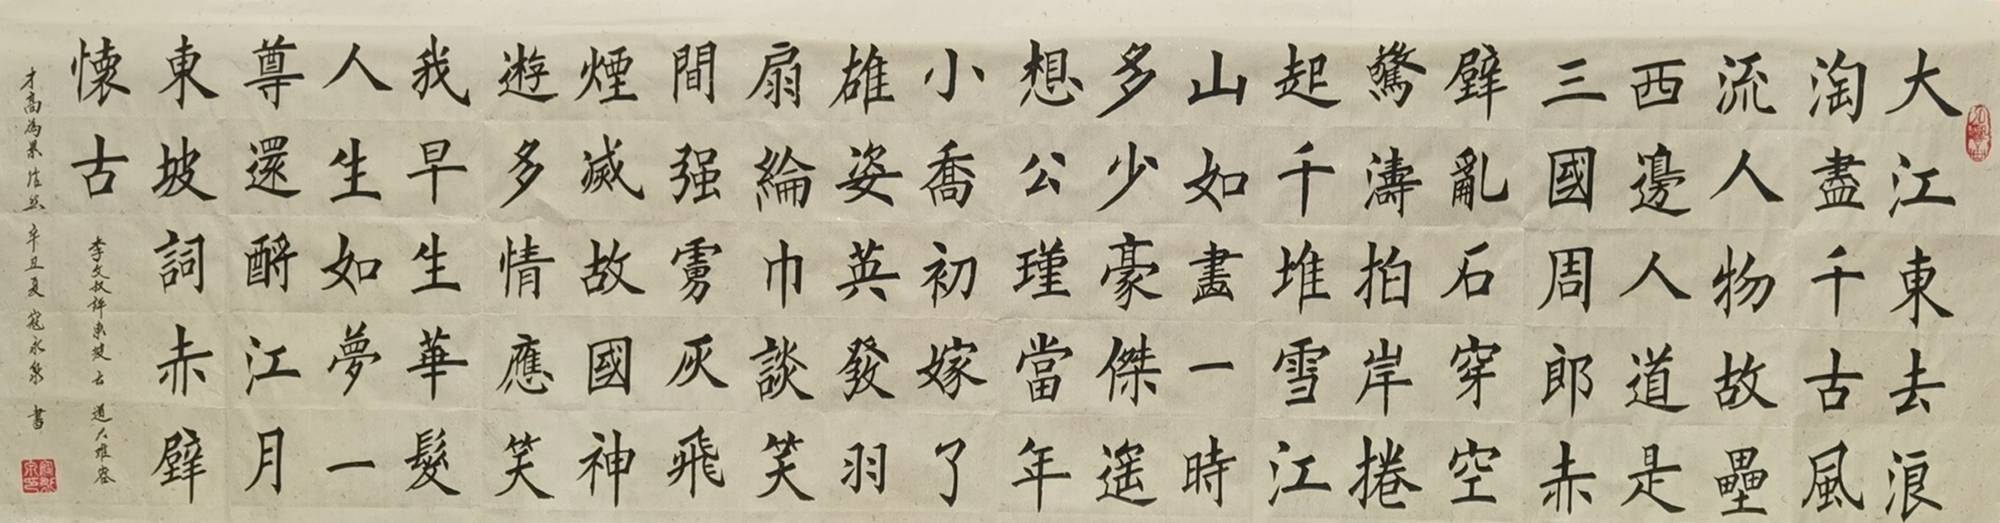 大江東去浪
淘盡千古風
流人物故壘
西邊人道是
三國周郎赤
壁亂石穿空
驚濤拍岸捲
起千堆雪江
山如畫一時
多少豪傑遙
想公瑾當年
小喬初嫁了
雄姿英發羽
扇綸巾談笑
間强虜灰飛
煙滅故國神
遊多情應笑
我早生華髮
人生如夢一
尊還酹江月
東坡詞赤壁
懷古
李文叔評東坡云 道大难容
才高為累信然 辛丑夏 寇永泉 書